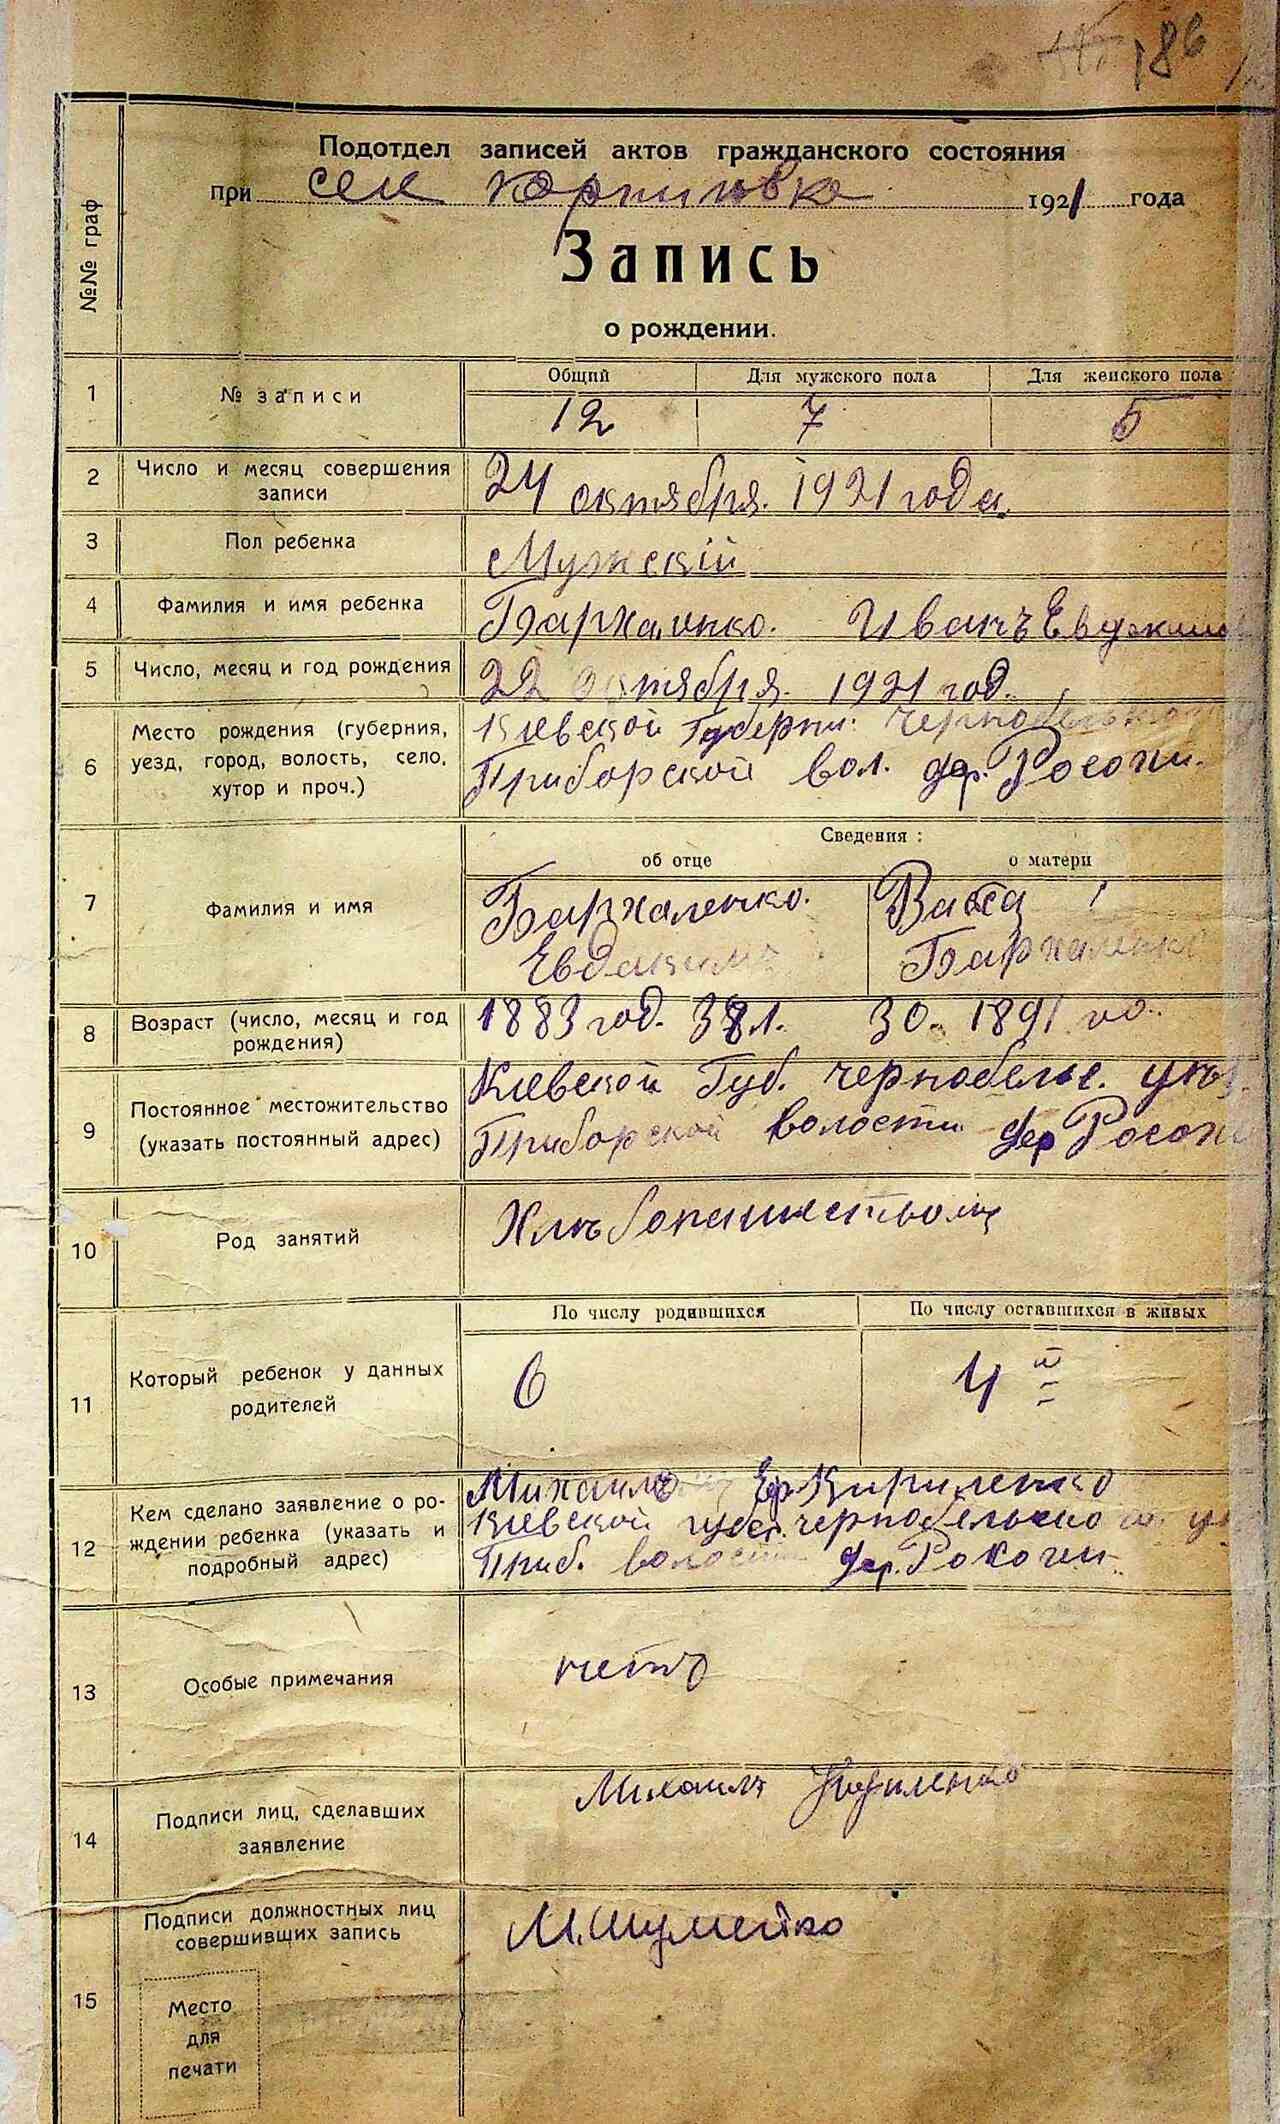 186
Подотдел записей актов гражданского состояния
при селе Карпиловка 1921 года
№№ граф
Запись
о рождении.
1 № записи
Общий Для мужского пола Для женского пола
12 7 5
2 Число и месяц совершения записи
24 октября. 1921 года.
3 Пол ребенка
Мужскій
4 Фамилия и имя ребенка
Бархаленко. Иванъ Евдоким
5 Число, месяц и год рождения
22 октября. 1921 год.
6 Место рождения (губерния,
уезд, город, волость, село,
хутор и проч.)
Киевской Губерни:
Приборской вол. дер. Росохи.
Сведения:
об отце о матери
7 Фамилия и имя
Бархаленко. Васса
Евдакимъ Бархаленко
8 Возраст (число, месяц и год
рождения)
1883 год. 38 л. 30. 1891 го.
9 Постоянное местожительство
(указать постоянный адрес)
Киевской Губ. чернобельс. уез.
Приборской волости дер Росохи
10 Род занятий
Хлѣбопашеством
11 Который ребенок у данных
родителей
По числу родившихся По числу оставшихся в живых
6 4 й
12 Кем сделано заявление о ро-
ждении ребенка (указать и
подробный адрес)
Михаилъ Еф. Кириленко
Киевской губер. чернобельского у
Приб. волости дер. Рохочи
13 Особые примечания
нетъ
14 Подписи лиц, сделавших
заявление
Михаилъ Кириленко
15 Подписи должностных лиц
совершивших запись
М. Шумейко
Место
для
печати